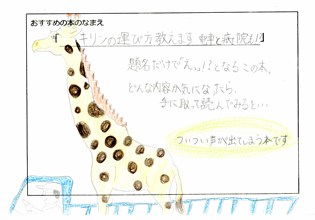 おすすめの本のなまえ
『キリンの運び方教えます 電車と病院も!?』
題名だけで「えっ!?」となるこの本。
どんな内容か気になったら、
手に取って読んでみると…
ついつい声が出てしまう本です